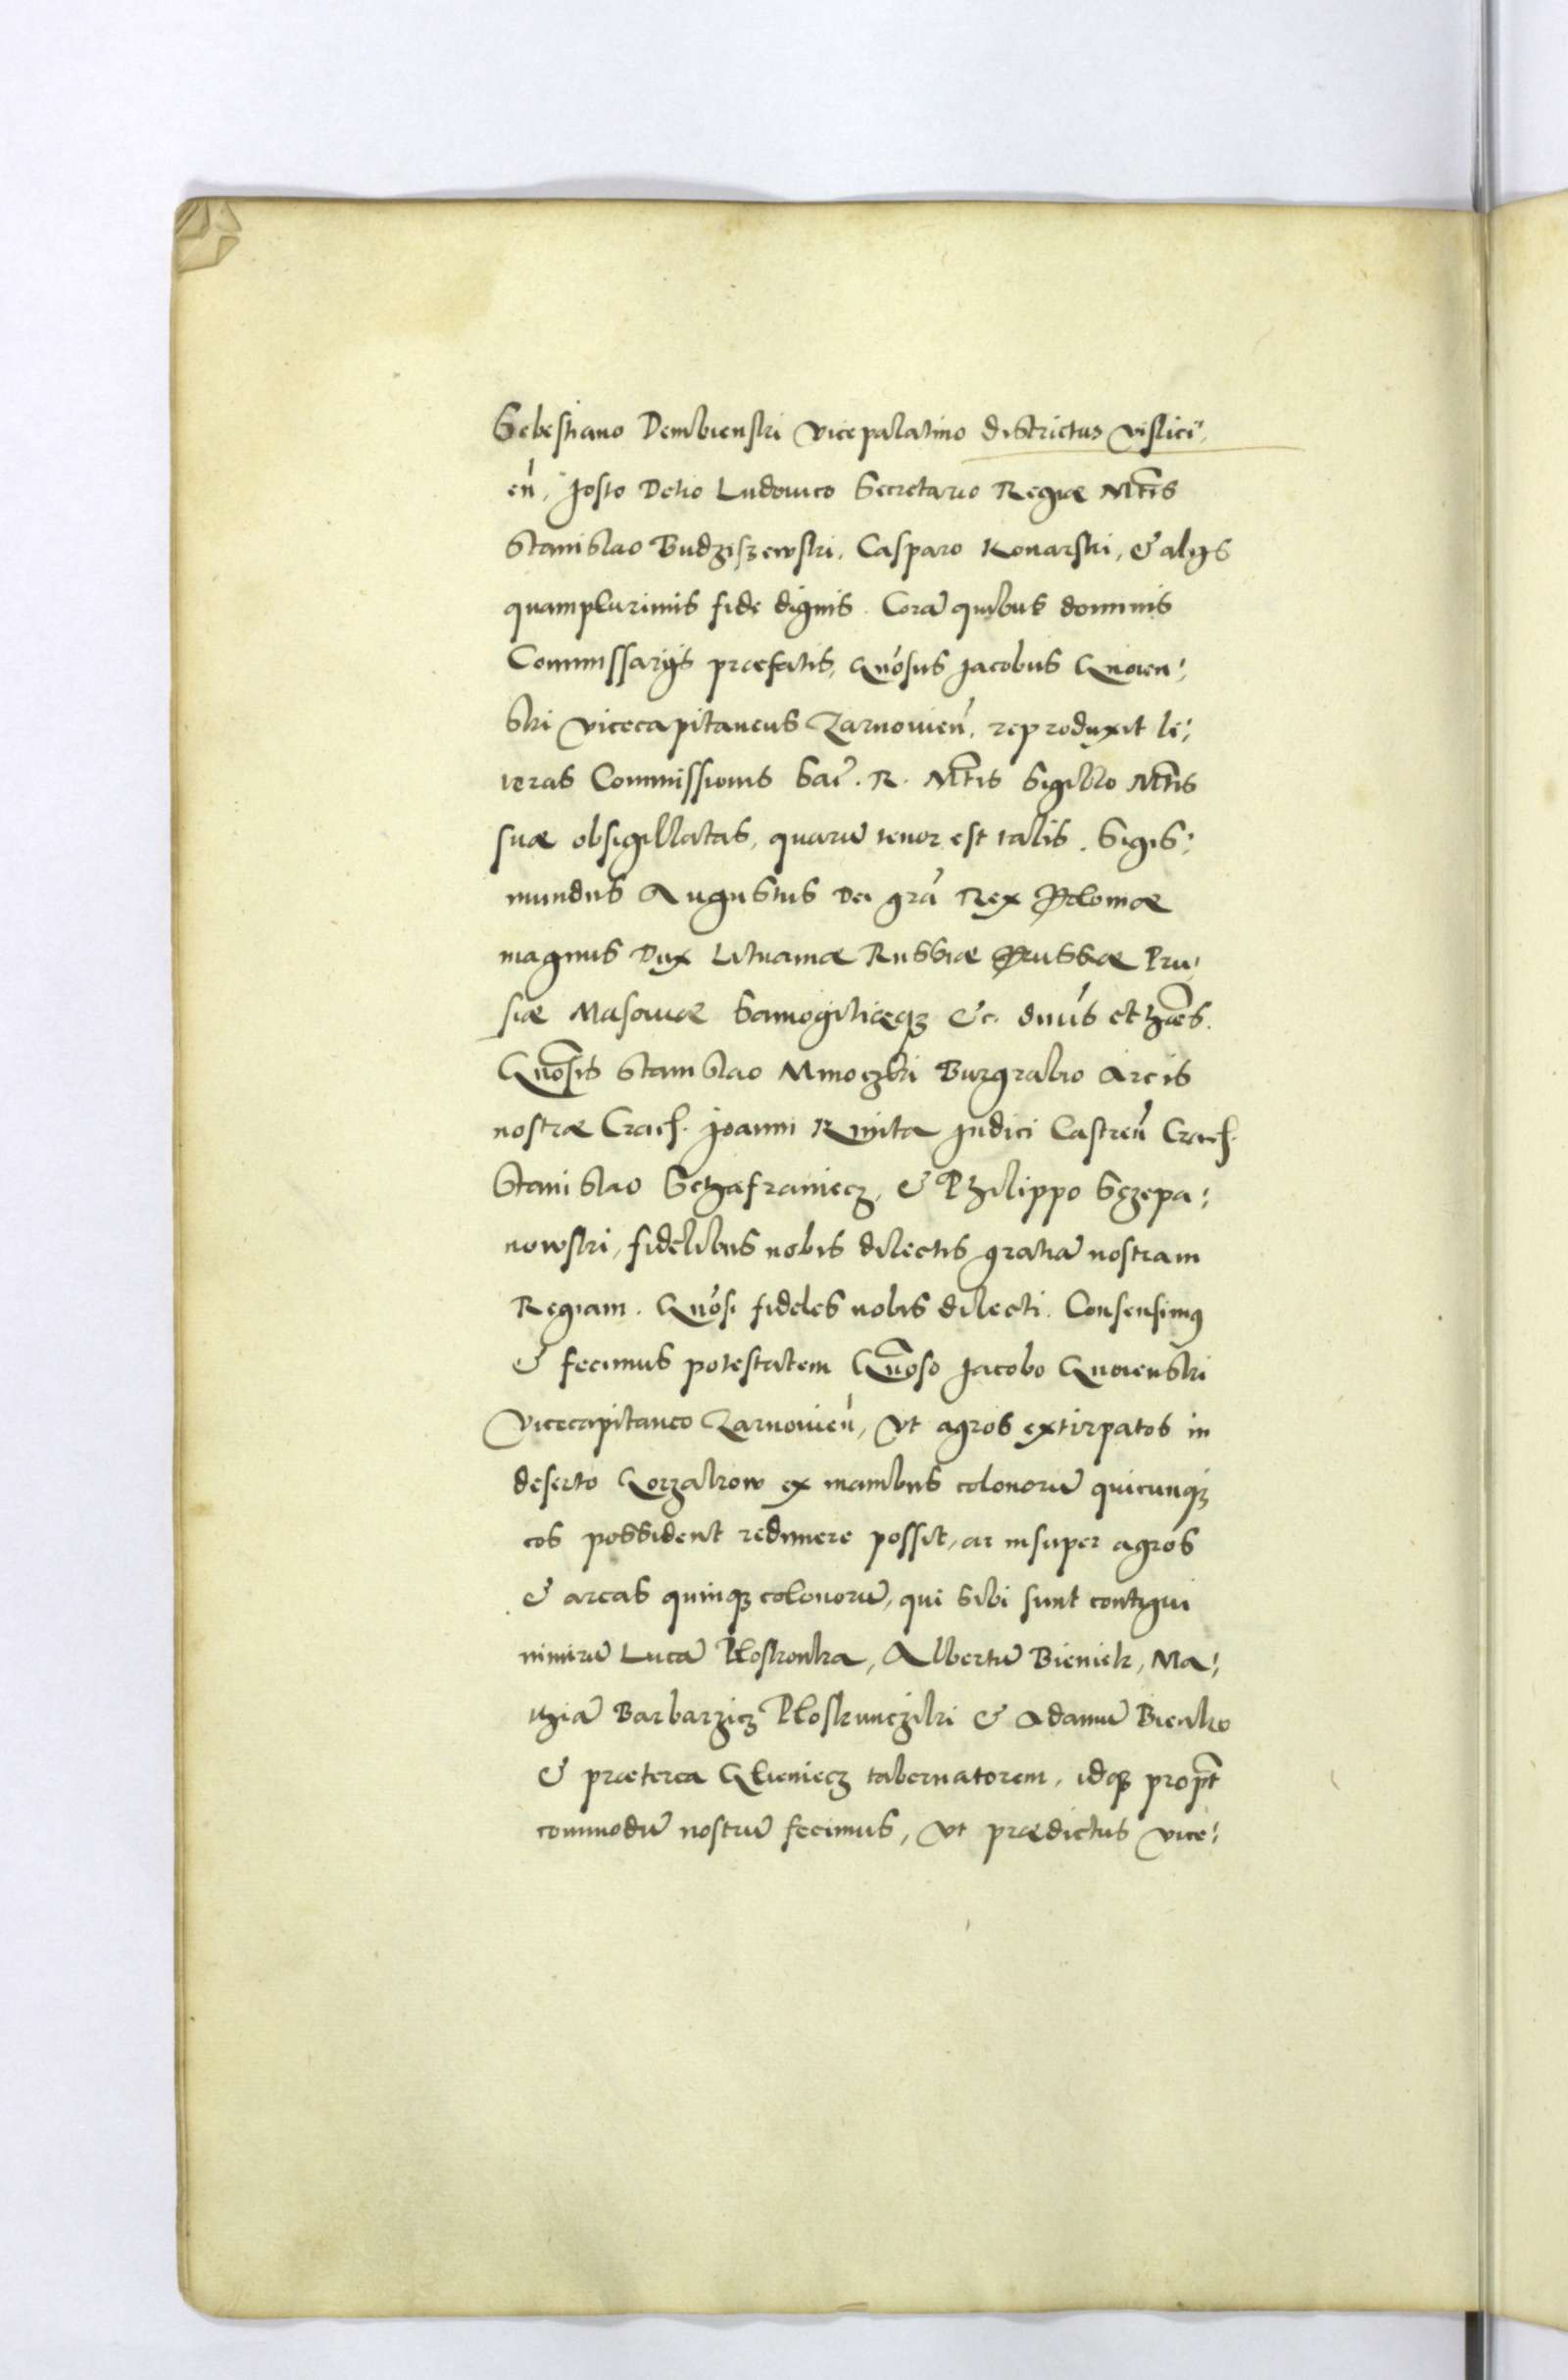 Sebestiano Dembienski Vicepalatino districtus Vislici¨,
en̄, Josto Detio Ludovico Secretario Regiæ Mc̄tis
Stanislao Budziszewski, Casparo Konarski, & alijs
quamplurimis fide dignis. Corā quibus dominis
Commissarijs præfatis, Gn̄osus Jacobus Gnoien:
ski Vicecapitaneus Zarnowien̄, reproduxit li:
teras Commissionis Sac̄. R. Mc̄tis Sigillo Mc̄tis
suæ obsigillatas, quarū tenor est talis. Sigis:
mundus Augustus Dei grā Rex Poloniæ
magnus Dux Lituaniæ Russiæ Prussiæ Pru,
siæ Masoviæ Samogitiæq3 &c. dnūs et hǣs.
Gn̄osis Stanislao Minoczki Burgrabio Arcis
nostræ Crach. Joanni Kmita Judici Castren̄ Crach.
Stanislao Schafraniecz, & Philippo Sczepa:
nowski, fidelibus nobis dilectis gratiā nostram
Regiam. Gn̄osi fideles nobis dilecti. Consensimus
& fecimus potestatem Gn̄oso Jacobo Gnoienski
Vicecapitaneo Zarnowien̄, Vt agros extirpatos in
deserto Gorzakow ex manibus colonorū quicunq3
eos possident redimere possit, ac insuper agros
& areas quinq3 colonorū, qui sibi sunt contigui
nimirū Lucā Ploskonka, Albertū Bieniek, Ma:
thiā Barbarzicz Ploskuncziki & Adamū Bienko
& præterea Glieniecz tabernatorem, idq3 propt̄
commodū nostrū fecimus, Vt prædictus Vice: